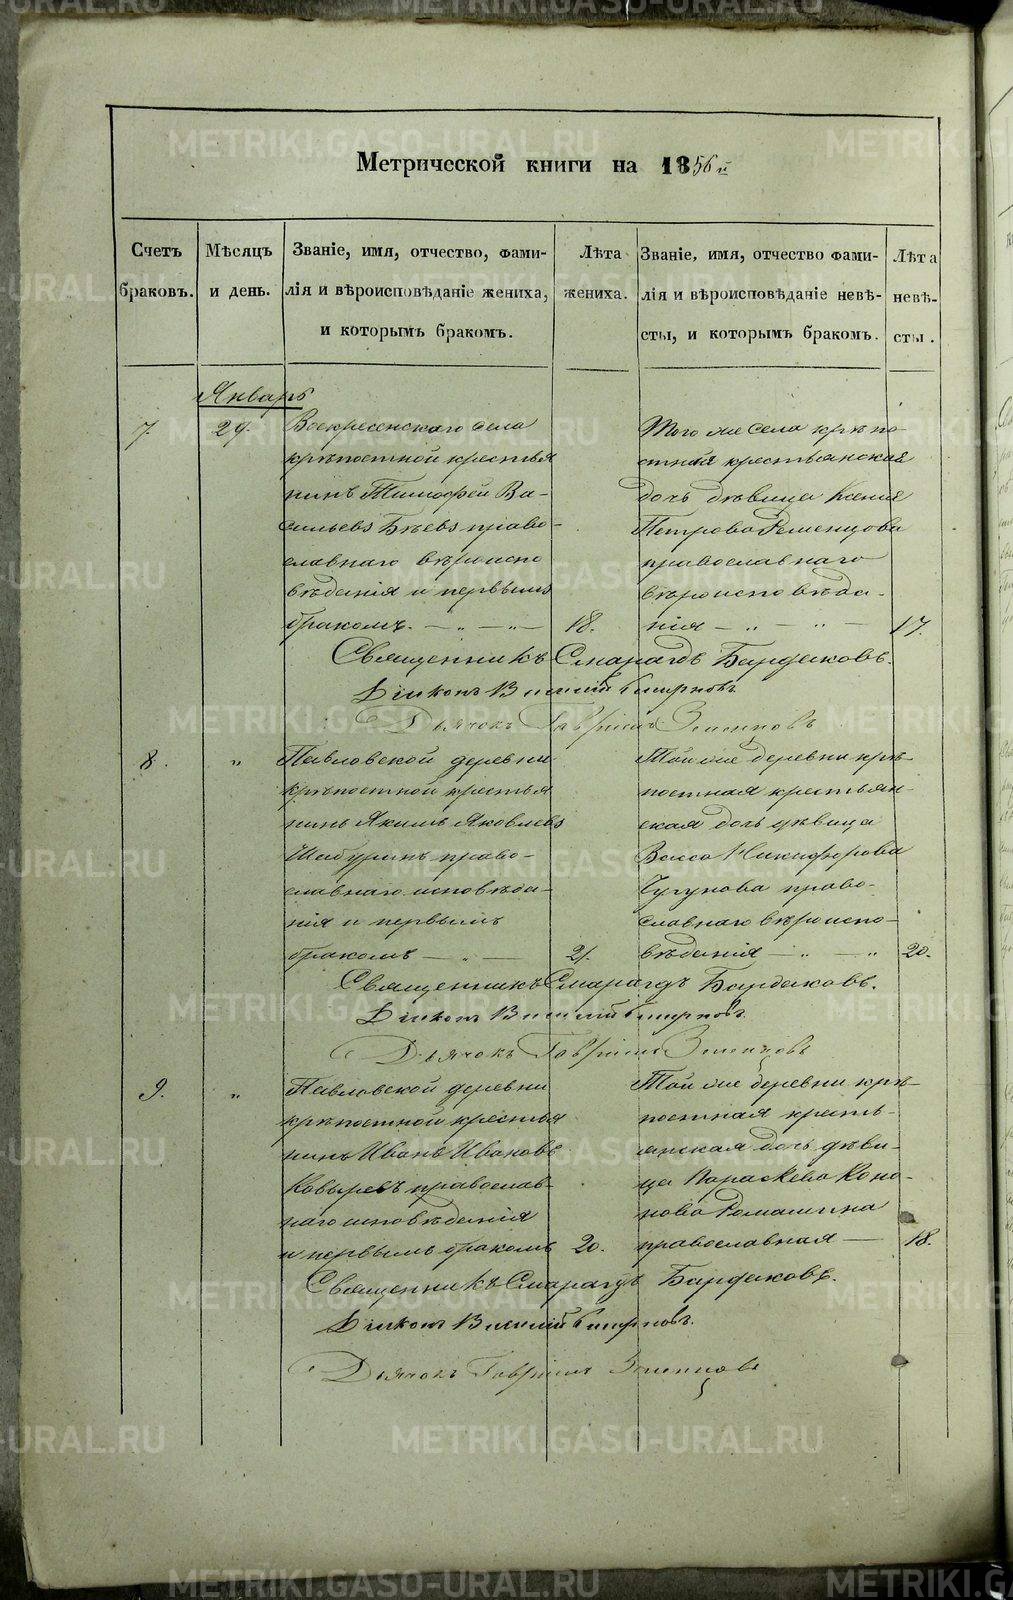 Метрической книги на 1856й
Счетъ браковъ.
Мѣсяцъ и день.
Званіе, имя, отчество, фами-
лія и вѣроисповѣданіе жениха,
и которымъ бракомъ.
Лѣта жениха.
Званіе, имя, отчество фами-
лія и вѣроисповѣданіе невѣ-
сты, и которымъ бракомъ.
Лѣта невѣ-
сты.
Январь
7. 29.
Воскресенскаго села
крѣпостной крестья
нинъ Тимофей Ва-
сильевъ Бѣевъ право-
славнаго вѣроиспо
вѣданія и первымъ
бракомъ. — „ — „ — 18.
Того же села крѣпо-
стная крестьянская
дочь дѣвица Ксенія
Петрова Ременцова
православнаго
вѣроисповѣда-
нія — „ — „ — 17.
Священникъ Смарагдъ Бардаковъ.
Діаконъ Василій Смирновъ
Дьячокъ Гавріилъ
8. „
Павловской деревни
крѣпостной крестья
нинъ Акимъ Яковлевъ
Шабуринъ право-
славнаго исповѣда-
нія и первымъ
бракомъ — „ — 21.
Той же деревни крѣ-
постная крестьян-
ская дочь дѣвица
Васса Никифорова
Чугунова право-
славнаго вѣроиспо-
вѣданія — „ — „ 20.
Священникъ Смарагдъ Бардаковъ.
Діаконъ Василій Смирновъ.
Дьячокъ Гавріилъ
9. „
Павловской деревни
крѣпостной крестья
нинъ Иванъ Ивановъ
Ковыревъ православ-
наго исповѣданія
и первымъ бракомъ 20.
Той же деревни крѣ-
постная кресть-
янская дочь дѣви-
ца Параскева Коно-
нова Ромашина
православная — 18.
Священникъ Смарагдъ Бардаковъ.
Діаконъ Василій Смирновъ.
Дьячокъ Гавріилъ
METRIKI.GASO-URAL.RU